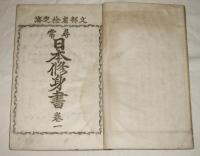 文部省検定済
尋常
日本修身書
巻一